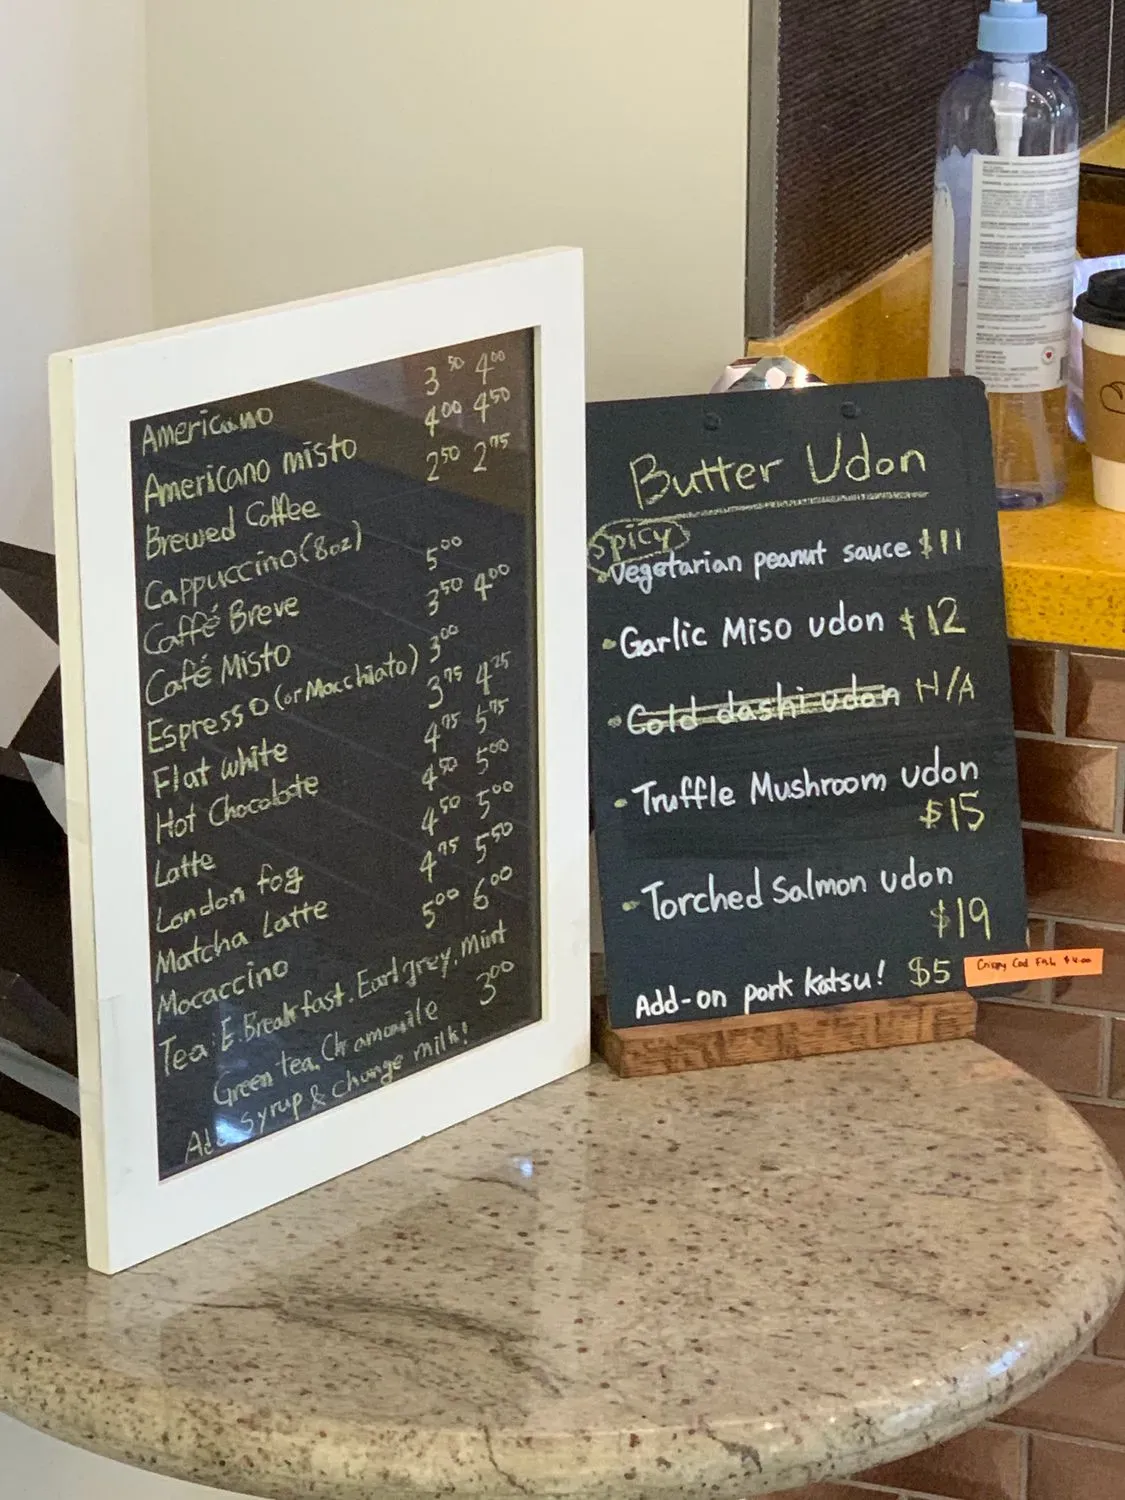 Americano 3⁵⁰ 4⁰⁰
Americano misto 4⁰⁰ 4⁵⁰
Brewed Coffee 2⁵⁰ 2⁷⁵
Cappuccino (8oz)
Caffé Breve 5⁰⁰
Café Misto 3⁵⁰ 4⁰⁰
Espresso (or Macchiato) 3⁰⁰
Flat white 3⁷⁵ 4²⁵
Hot Chocolate 4⁷⁵ 5⁷⁵
Latte 4⁵⁰ 5⁰⁰
London fog 4⁵⁰ 5⁰⁰
Matcha Latte 4⁷⁵ 5⁵⁰
Mocaccino 5⁰⁰ 6⁰⁰
Tea: E.Breakfast. Earl grey, Mint
Green tea, Chamomile 3⁰⁰
Add Syrup & Change milk!
Butter Udon
Spicy
• Vegetarian peanut sauce $11
• Garlic Miso udon $12
• Cold dashi udon N/A
• Truffle Mushroom udon
$15
• Torched Salmon udon
$19
Add-on pork katsu! $5
Crispy Cod Fish $4.00